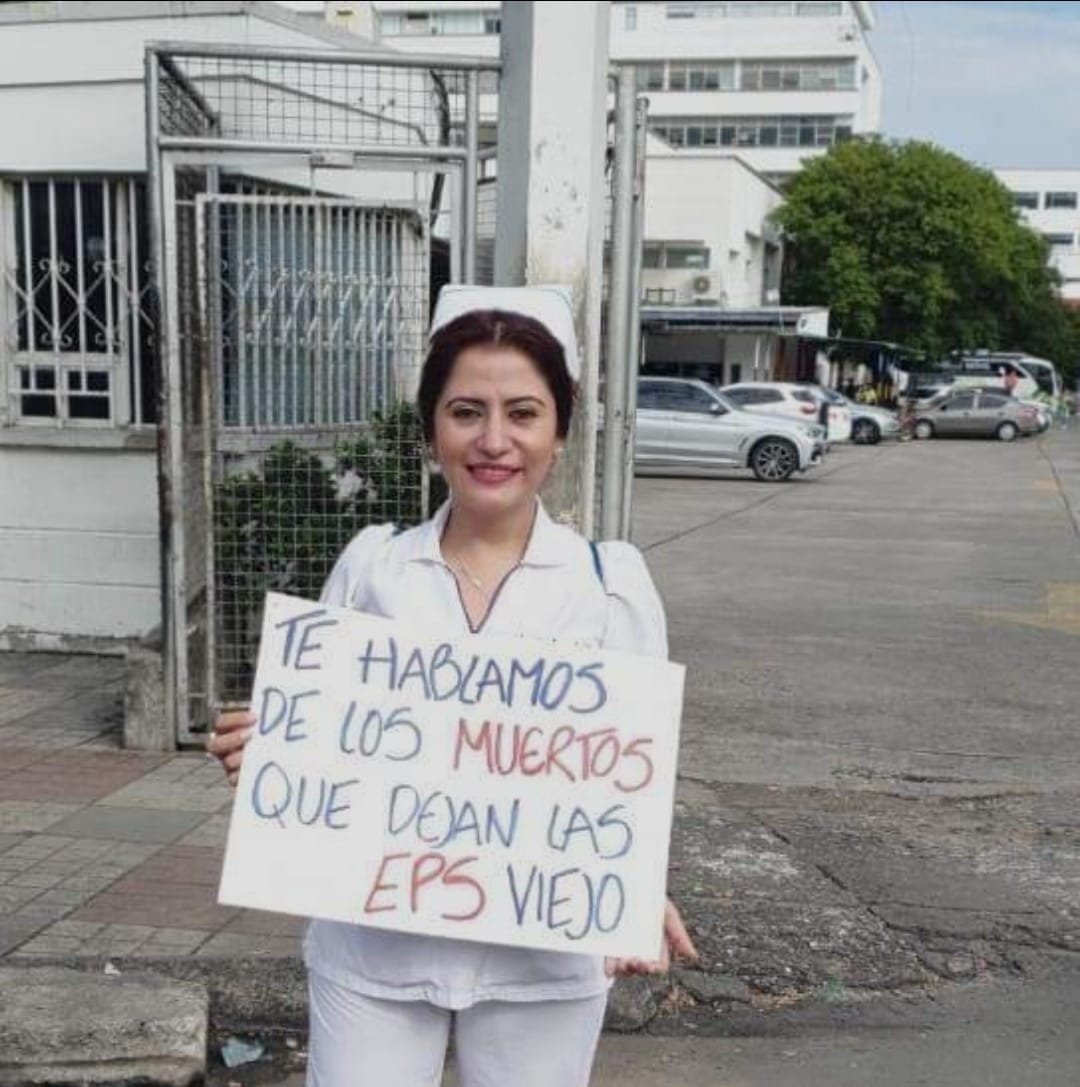 TE HABLAMOS
DE LOS MUERTOS
QUE DEJAN LAS
EPS VIEJO